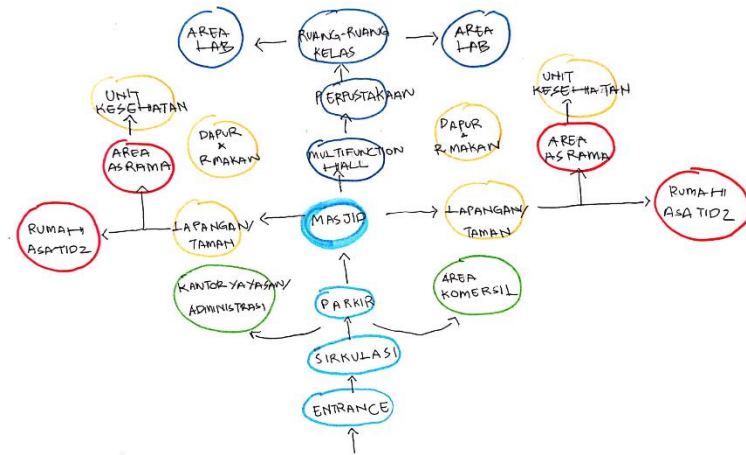 AREA
LAB
RUANG-RUANG
KELAS
AREA
LAB
UNIT
KESEHATAN
PERPUSTAKAAN
UNIT
KESEHATAN
DAPUR
&
R.MAKAN
DAPUR
&
R.MAKAN
AREA
ASRAMA
MULTIFUNCTION
HALL
AREA
ASRAMA
RUMAH
ASATIDZ
LAPANGAN/
TAMAN
MASJID
LAPANGAN/
TAMAN
RUMAH
ASATIDZ
KANTOR YAYASAN/
ADMINISTRASI
PARKIR
AREA
KOMERSIL
SIRKULASI
ENTRANCE